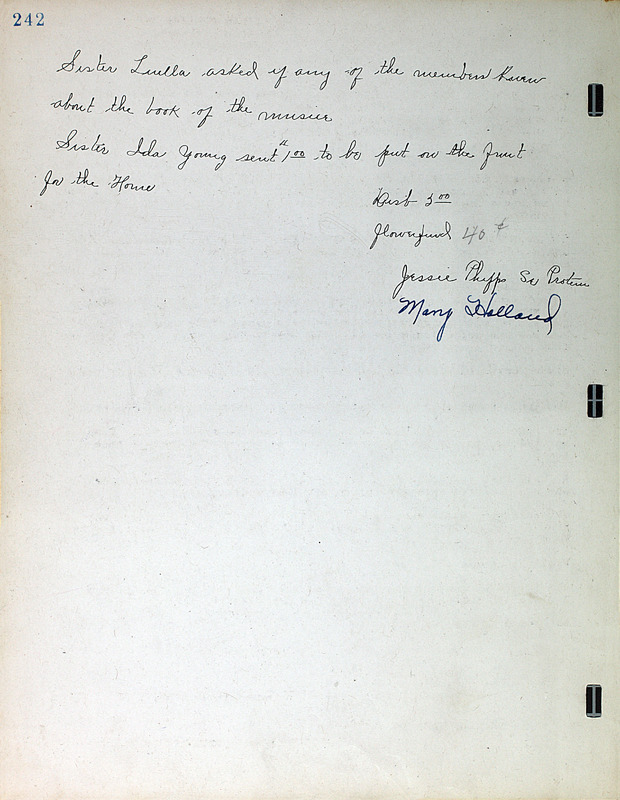 242
Sister Luella asked if any of the members knew
about the book of the
Sister Ida Young sent "1.00 to be put on the fruit
for the Home
5.00
flowerfund 40¢
Jessie Phipps Se Protem
Mary Holland